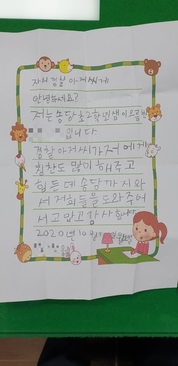 자서경찰 아저씨께
안녕하세요?
저는 송당초2학년생 이르름반
입니다
경찰 아저씨가 저에게
칭찬도 많이 해주고
힘든데 송당까지 와
서 저희들을 도와주어
서 고맙고 감사합니다
2020년 10월